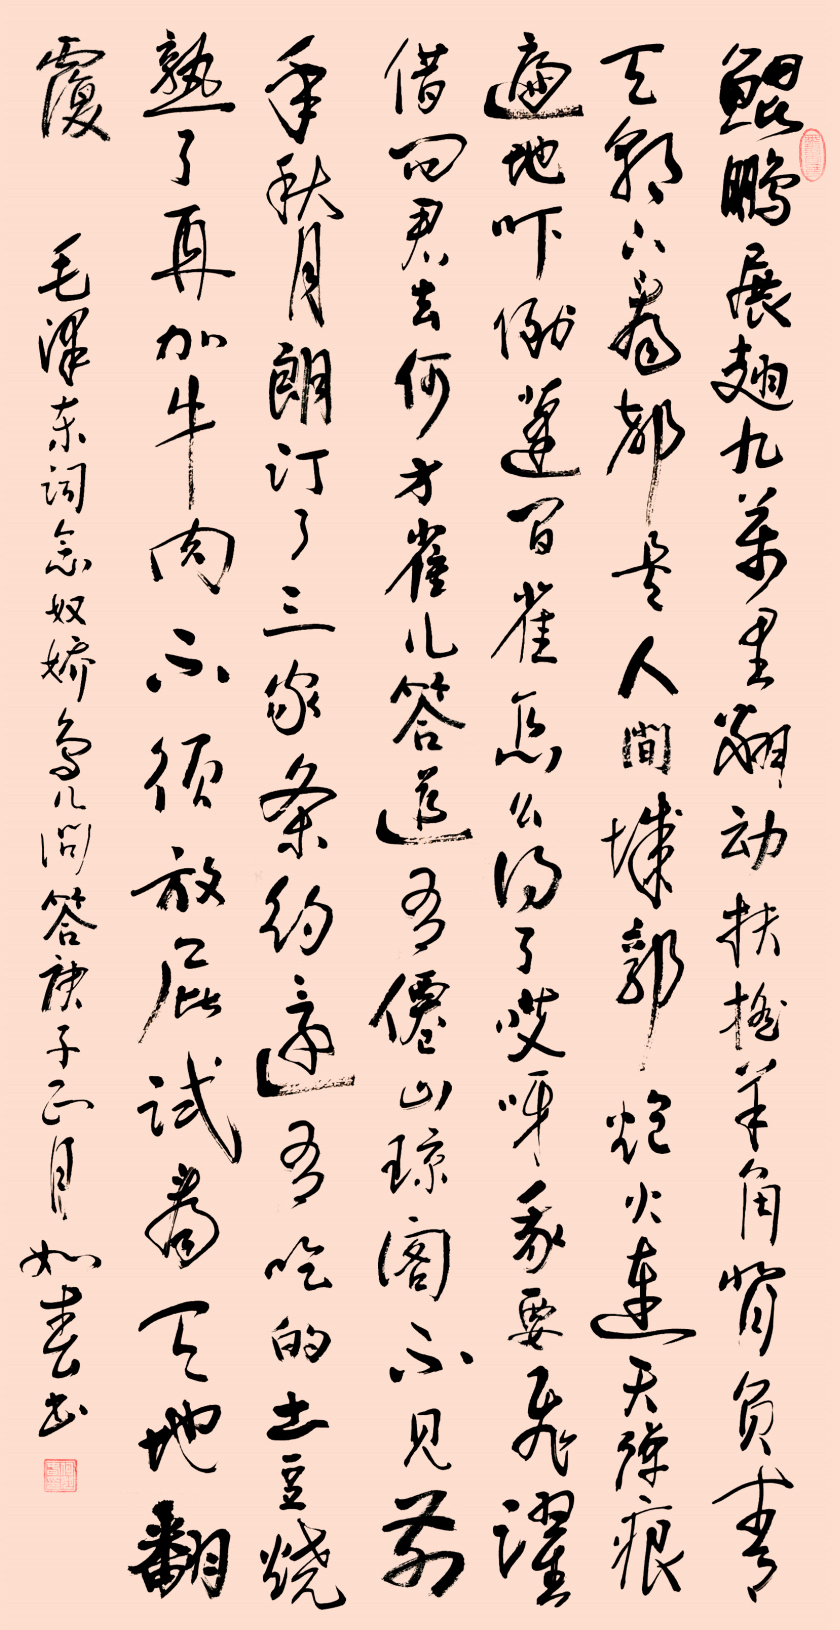 鲲鹏展翅九万里翻动扶摇羊角背负青
天朝下看都是人间城郭炮火连天弹痕
遍地吓倒蓬间雀怎么得了哎呀我要飞跃
借问君去何方雀儿答道有仙山琼阁不见前
年秋月朗订了三家条约还有吃的土豆烧
熟了再加牛肉不须放屁试看天地翻
覆
毛泽东词念奴娇鸟儿问答庚子正月如春书